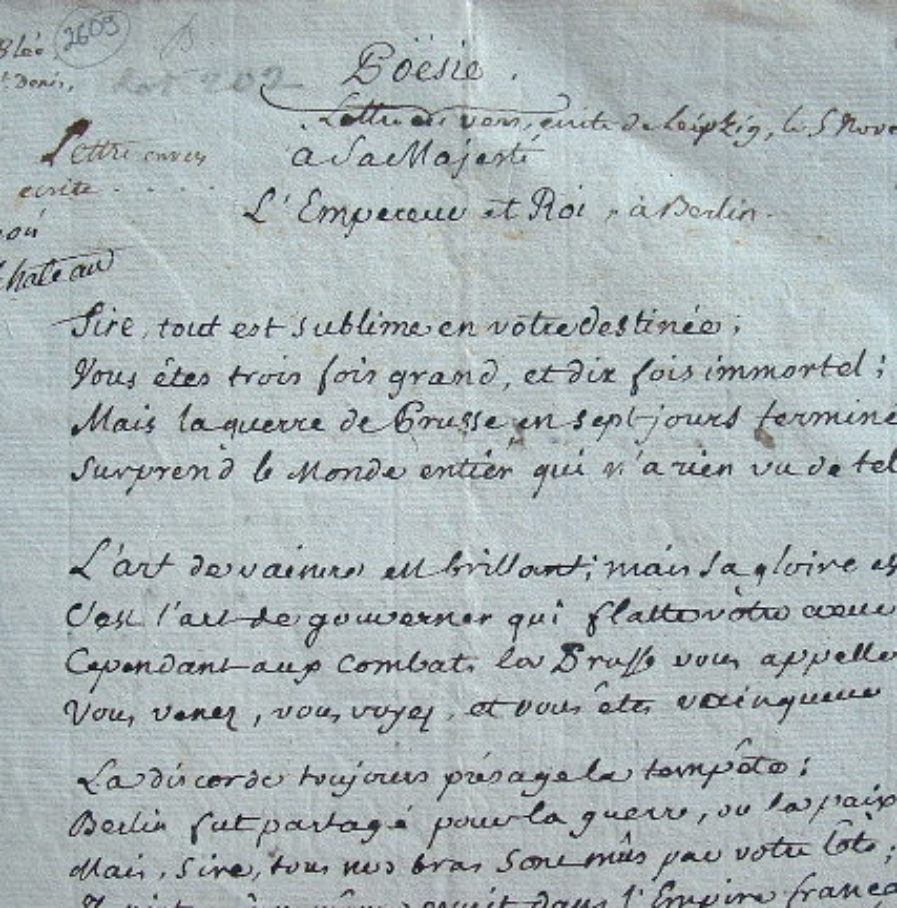 2609
Lot 202
Poësie.
Lettre en vers, écrite de Leipzig, le 5 Nove
a Sa Majesté
L'Empereur et Roi, à Berlin.
Bléo
t. Denis,
Lettre en vers
ecrite . . . . .
Chateau
Sire, tout est sublime en votre destinée;
Vous êtes trois fois grand, et dix fois immortel;
Mais la guerre de Prusse en sept jours terminé
Surprend le Monde entier qui n'a rien vu de tel
L'art de vaincre est brillant; mais sa gloire es
C'est l'art de gouverner qui flatte vôtre cœur
Cependant aux combats la Prusse vous appelle
Vous venez, vous voyez, et vous êtes vainqueur
La discorde toujours présage la tempête;
Berlin fut partagé pour la guerre, ou la paix
Mais, Sire, tous nos bras sont mûs par votre tête;
dans l'Empire frança